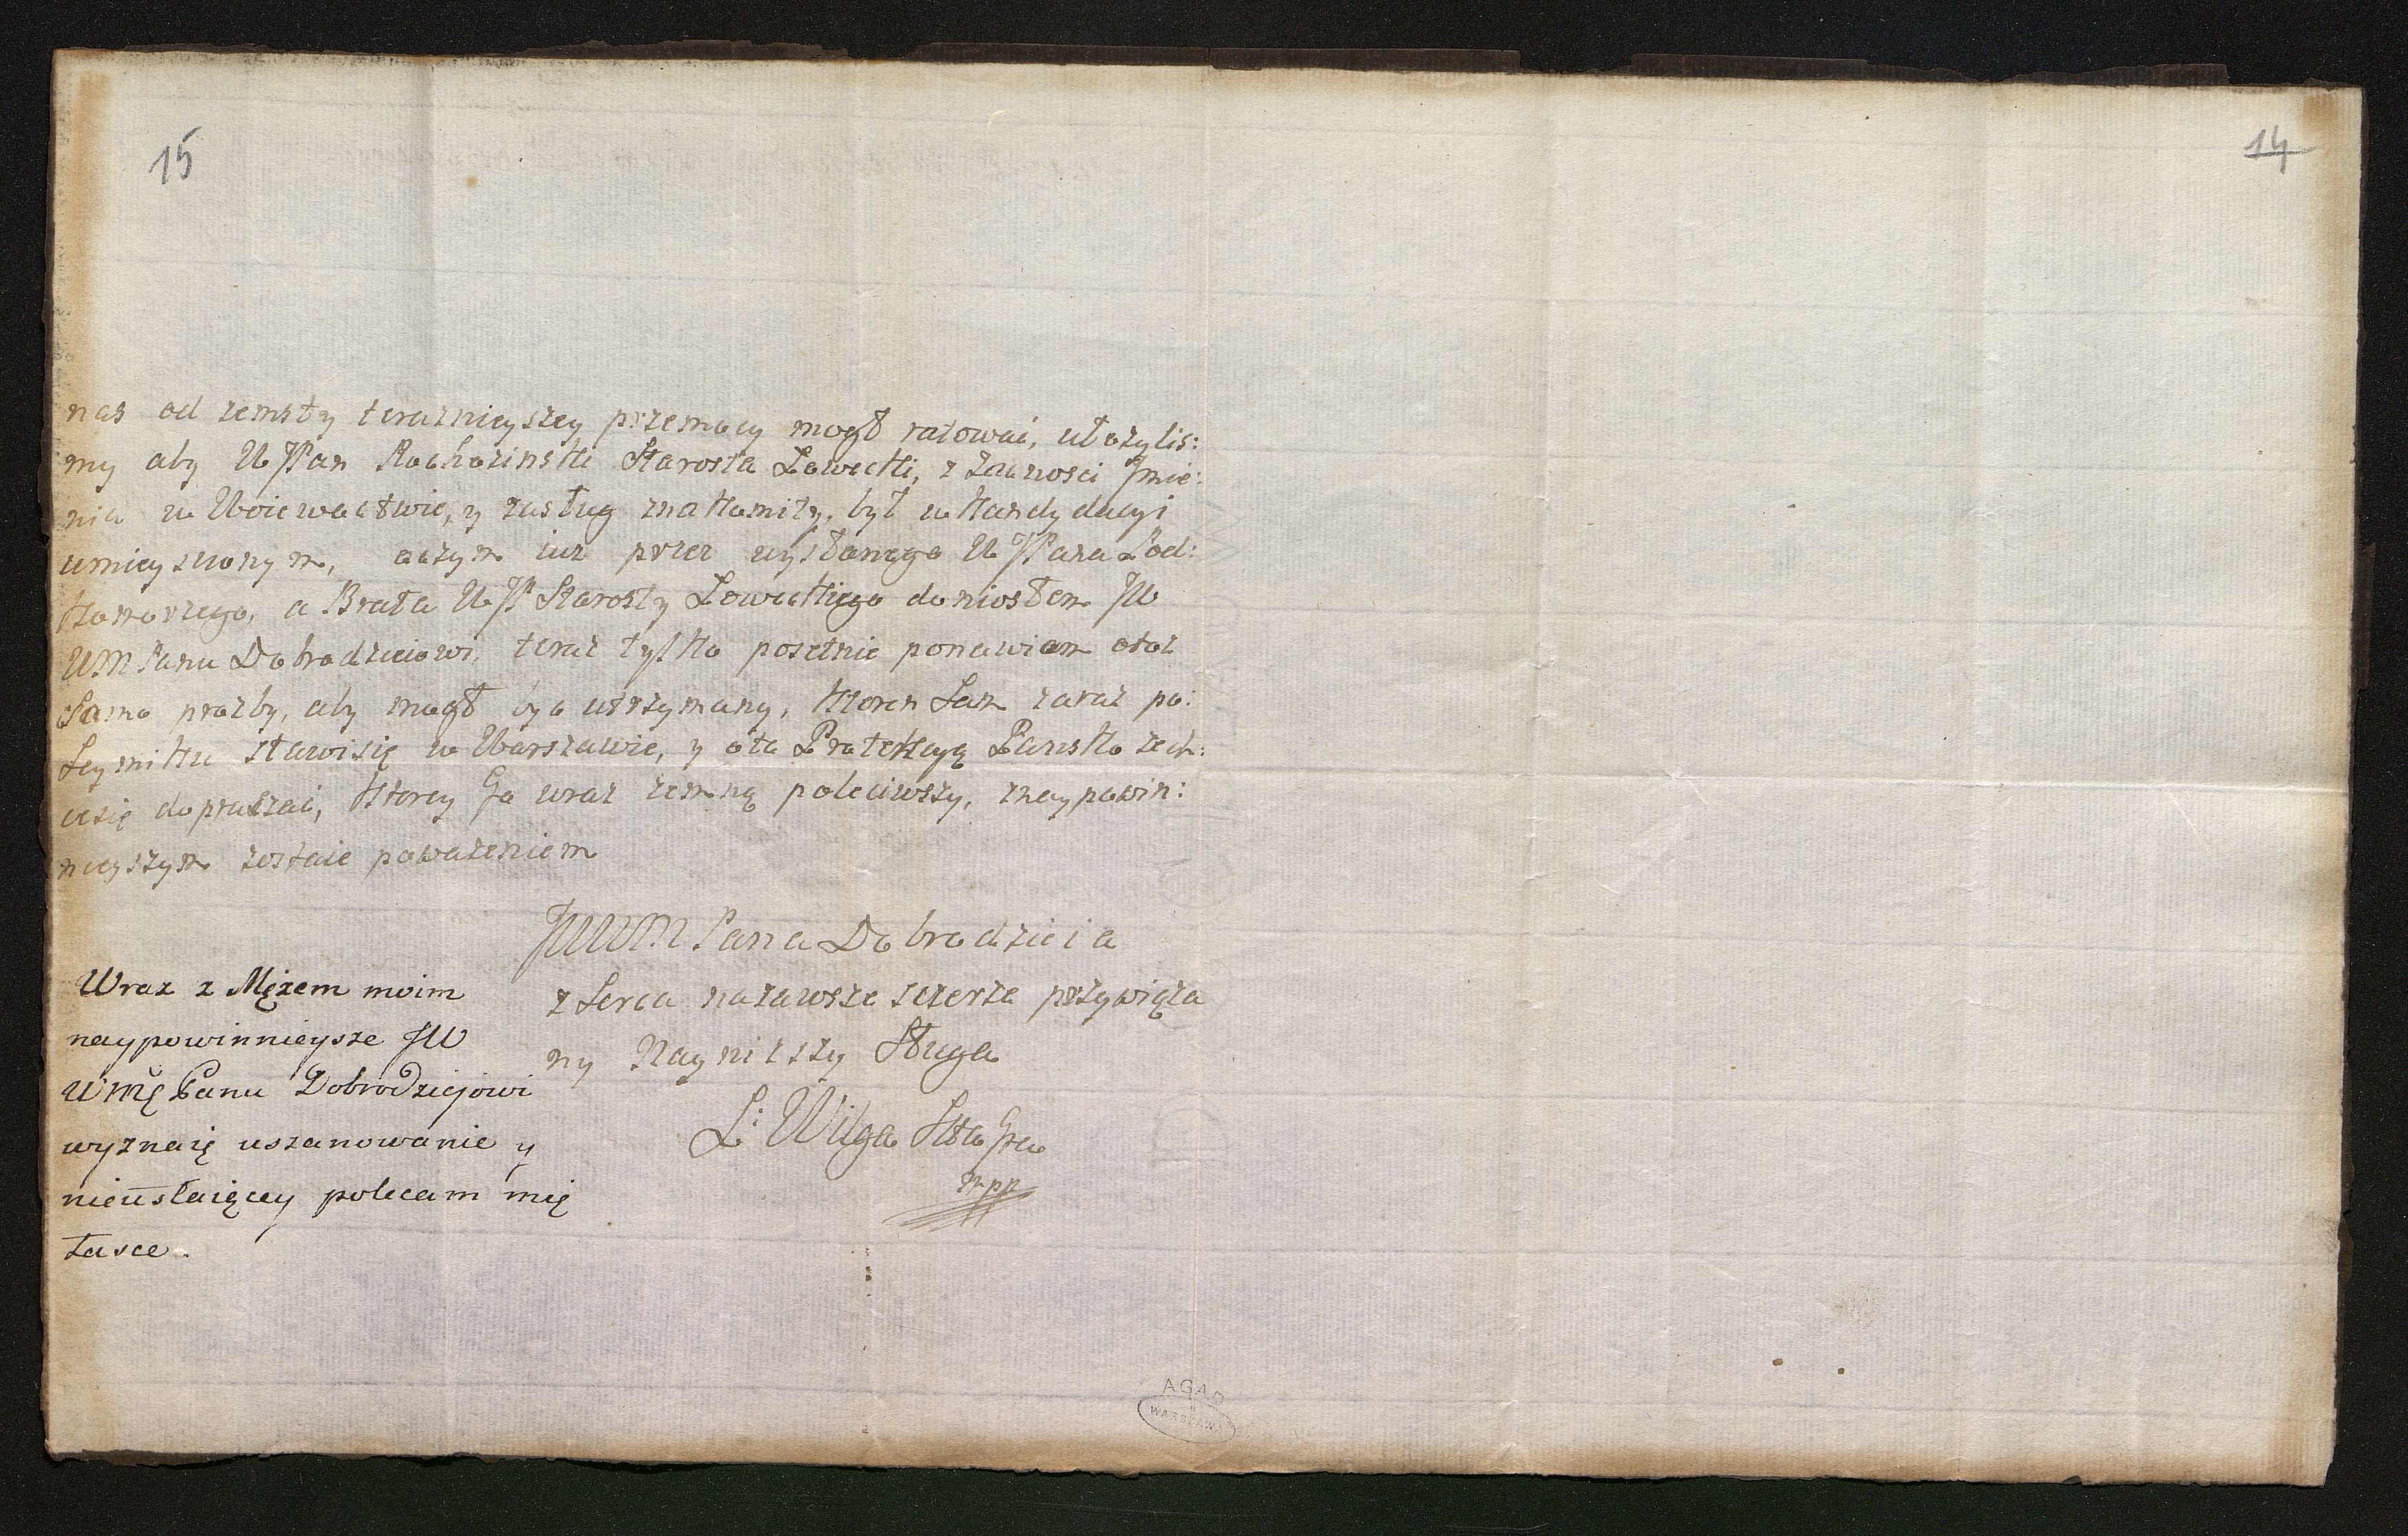 15
14
nas od zemsty teraznieyszey przemocy mogł ratowac, ułozylis:
my aby WJPan Rochozinski Starosta Łowecki, z zacnosci Jmie:
nia w Woiewactwie, y zasług znakomity, był w kandydacyi
umieysconym, oczym iuz przez wysłanego WJPana Pod:
komorzego, a Brata WJP Starosty Łoweckiego doniosłem JW
WM Panu Dobrodzieiowi, teraz tylko posetnie ponawiam otoz
samo prozby, aby mogł byc utrzymany, ktoren sam zaraz po:
Seymiku stawi się w Warszawie, y oto Protekcyą Panską zech:
ce się dopraszac, ktorey Go wraz zemną poleciwszy, znaypowin:
nieyszym zostaie powazeniem
JWWM Pana Dobrodzieia
z serca nazawsze szczerze przywiąza
ny Nayniższy Sługa
L: Wilga
mpp
Wraz z Mężem moim
naypowinnieysze JW
WMĘ Panu Dobrodziejowi
wyznaię uszanowanie y
nieustaiącey polecam mię
łasce.
AGAD
WARSZAWA